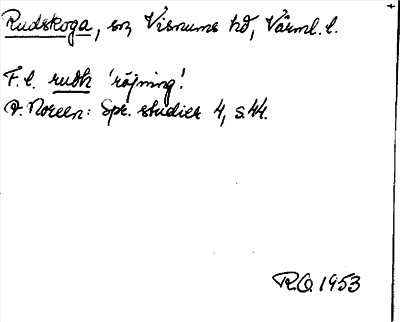 Rudskoga, sn Visnums hd, Värml. l.
F.l. rudh 'röjning'.
A. Noreen: Spr. studier 4, s. 44.
R.O. 1953